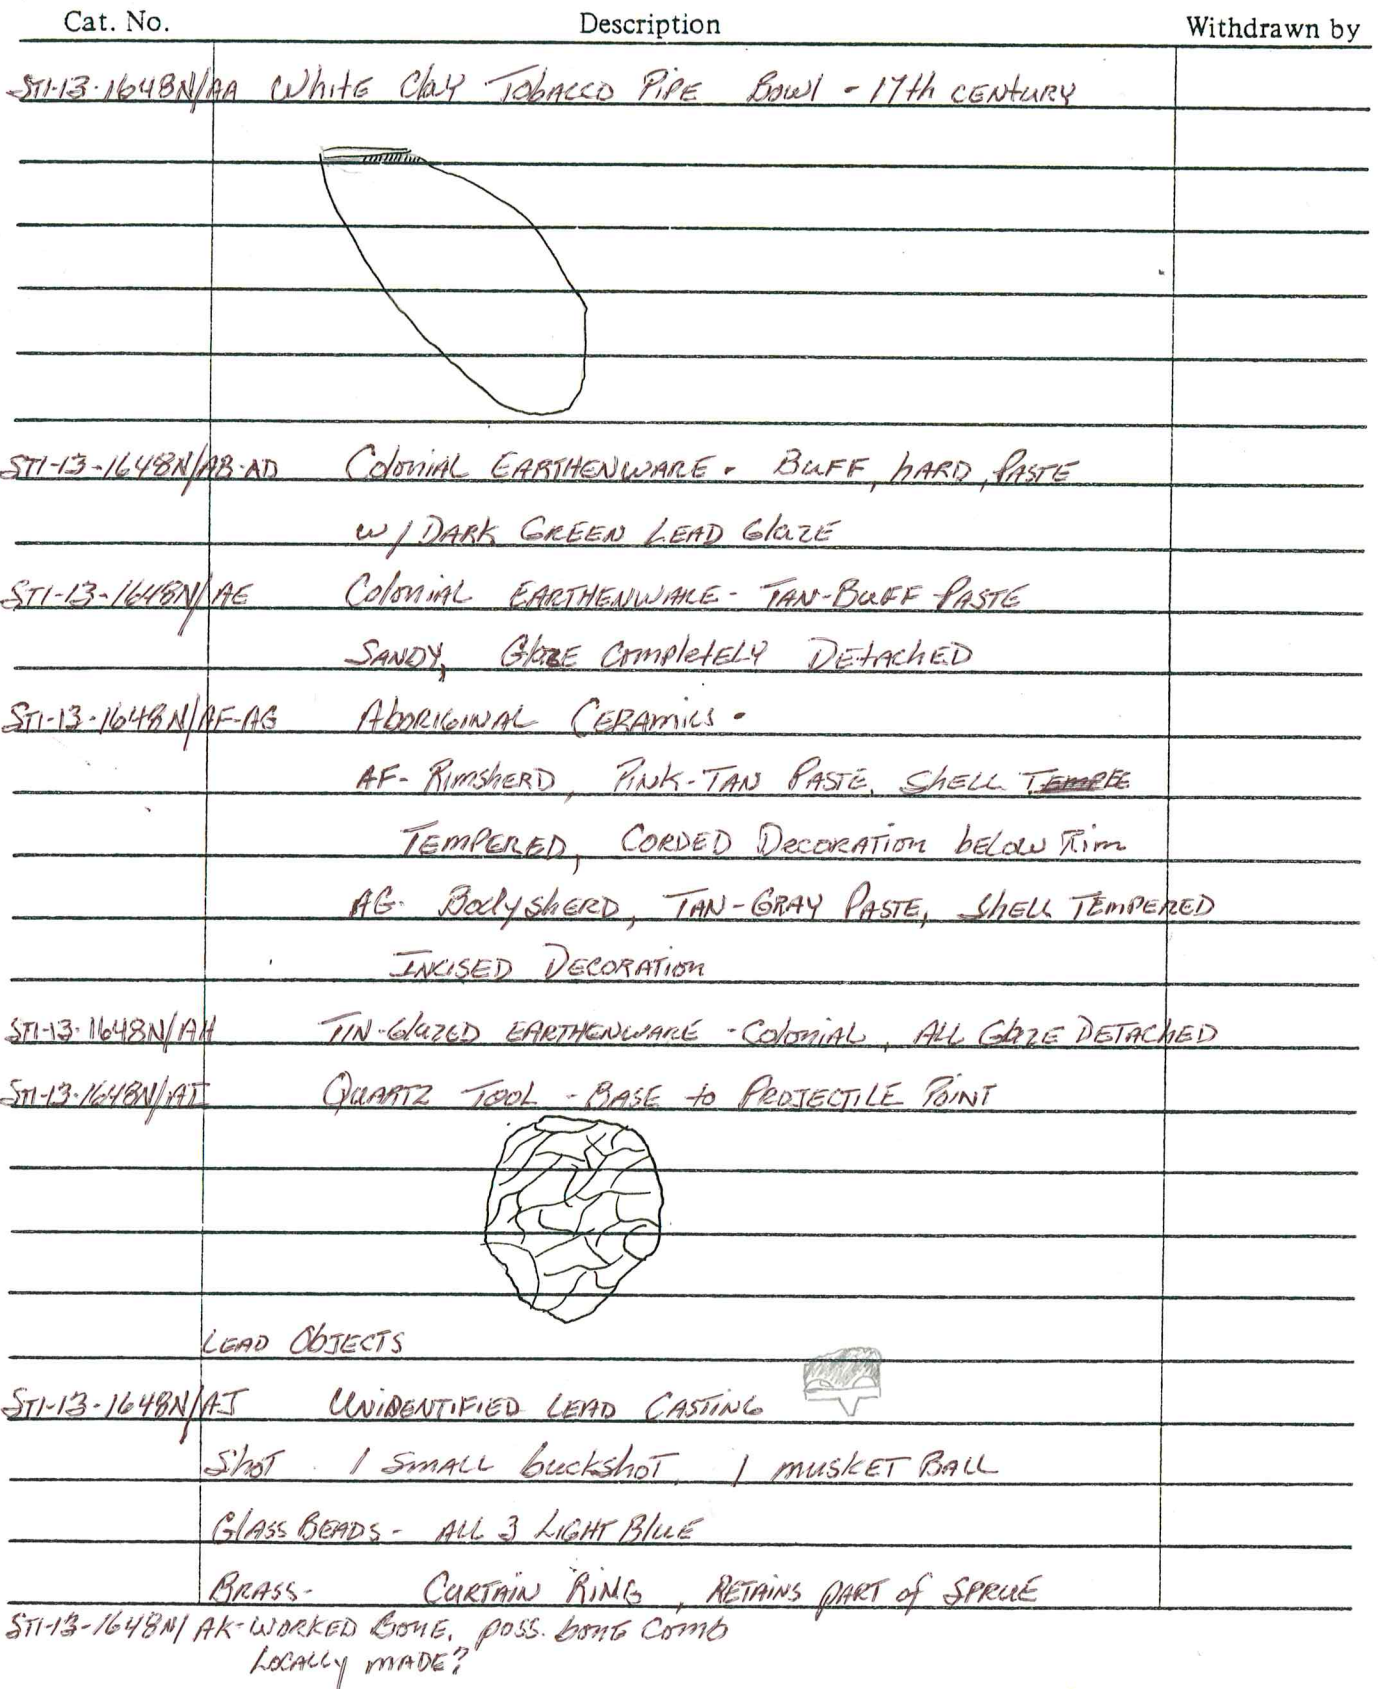 Cat. No. Description Withdrawn by
ST1-13-1648N/AA White Clay Tobacco Pipe Bowl - 17th CENTURY
ST1-13-1648N/AB-AD Colonial EARTHENWARE. BUFF, hARD, PASTE
w/ DARK GREEN LEAD GlaZE
ST1-13-1648N/AE Colonial EARTHENWARE - TAN-BUFF PASTE
SANDY, GlaZE Completely Detached
ST1-13-1648N/AF-AG Aboriginal CERAMICS.
AF- Rimsherd, PINK-TAN PASTE, Shell
TEMPERED, CORDED DECORATION below Rim
AG- Bodysherd, TAN-GRAY PASTE, Shell TEMPERED
INCISED DECORATION
ST1-13-1648N/AH TIN-GlaZED EARTHENWARE - Colonial, ALL GlaZE DETACHED
ST1-13-1648N/AI QUARTZ TOOL - BASE to PROJECTILE POINT
LEAD ObJECTS
ST1-13-1648N/AJ UNIDENTIFIED LEAD CASTING
Shot 1 SMALL buckshot, 1 MUSKET BALL
GlASS BEADS - All 3 LIGHT BlUE
BRASS- CURTAIN RING, RETAINS part of SPRUE
ST1-13-1648N/AK-WORKED BONE, poss. bone Comb
LOCALLY MADE?